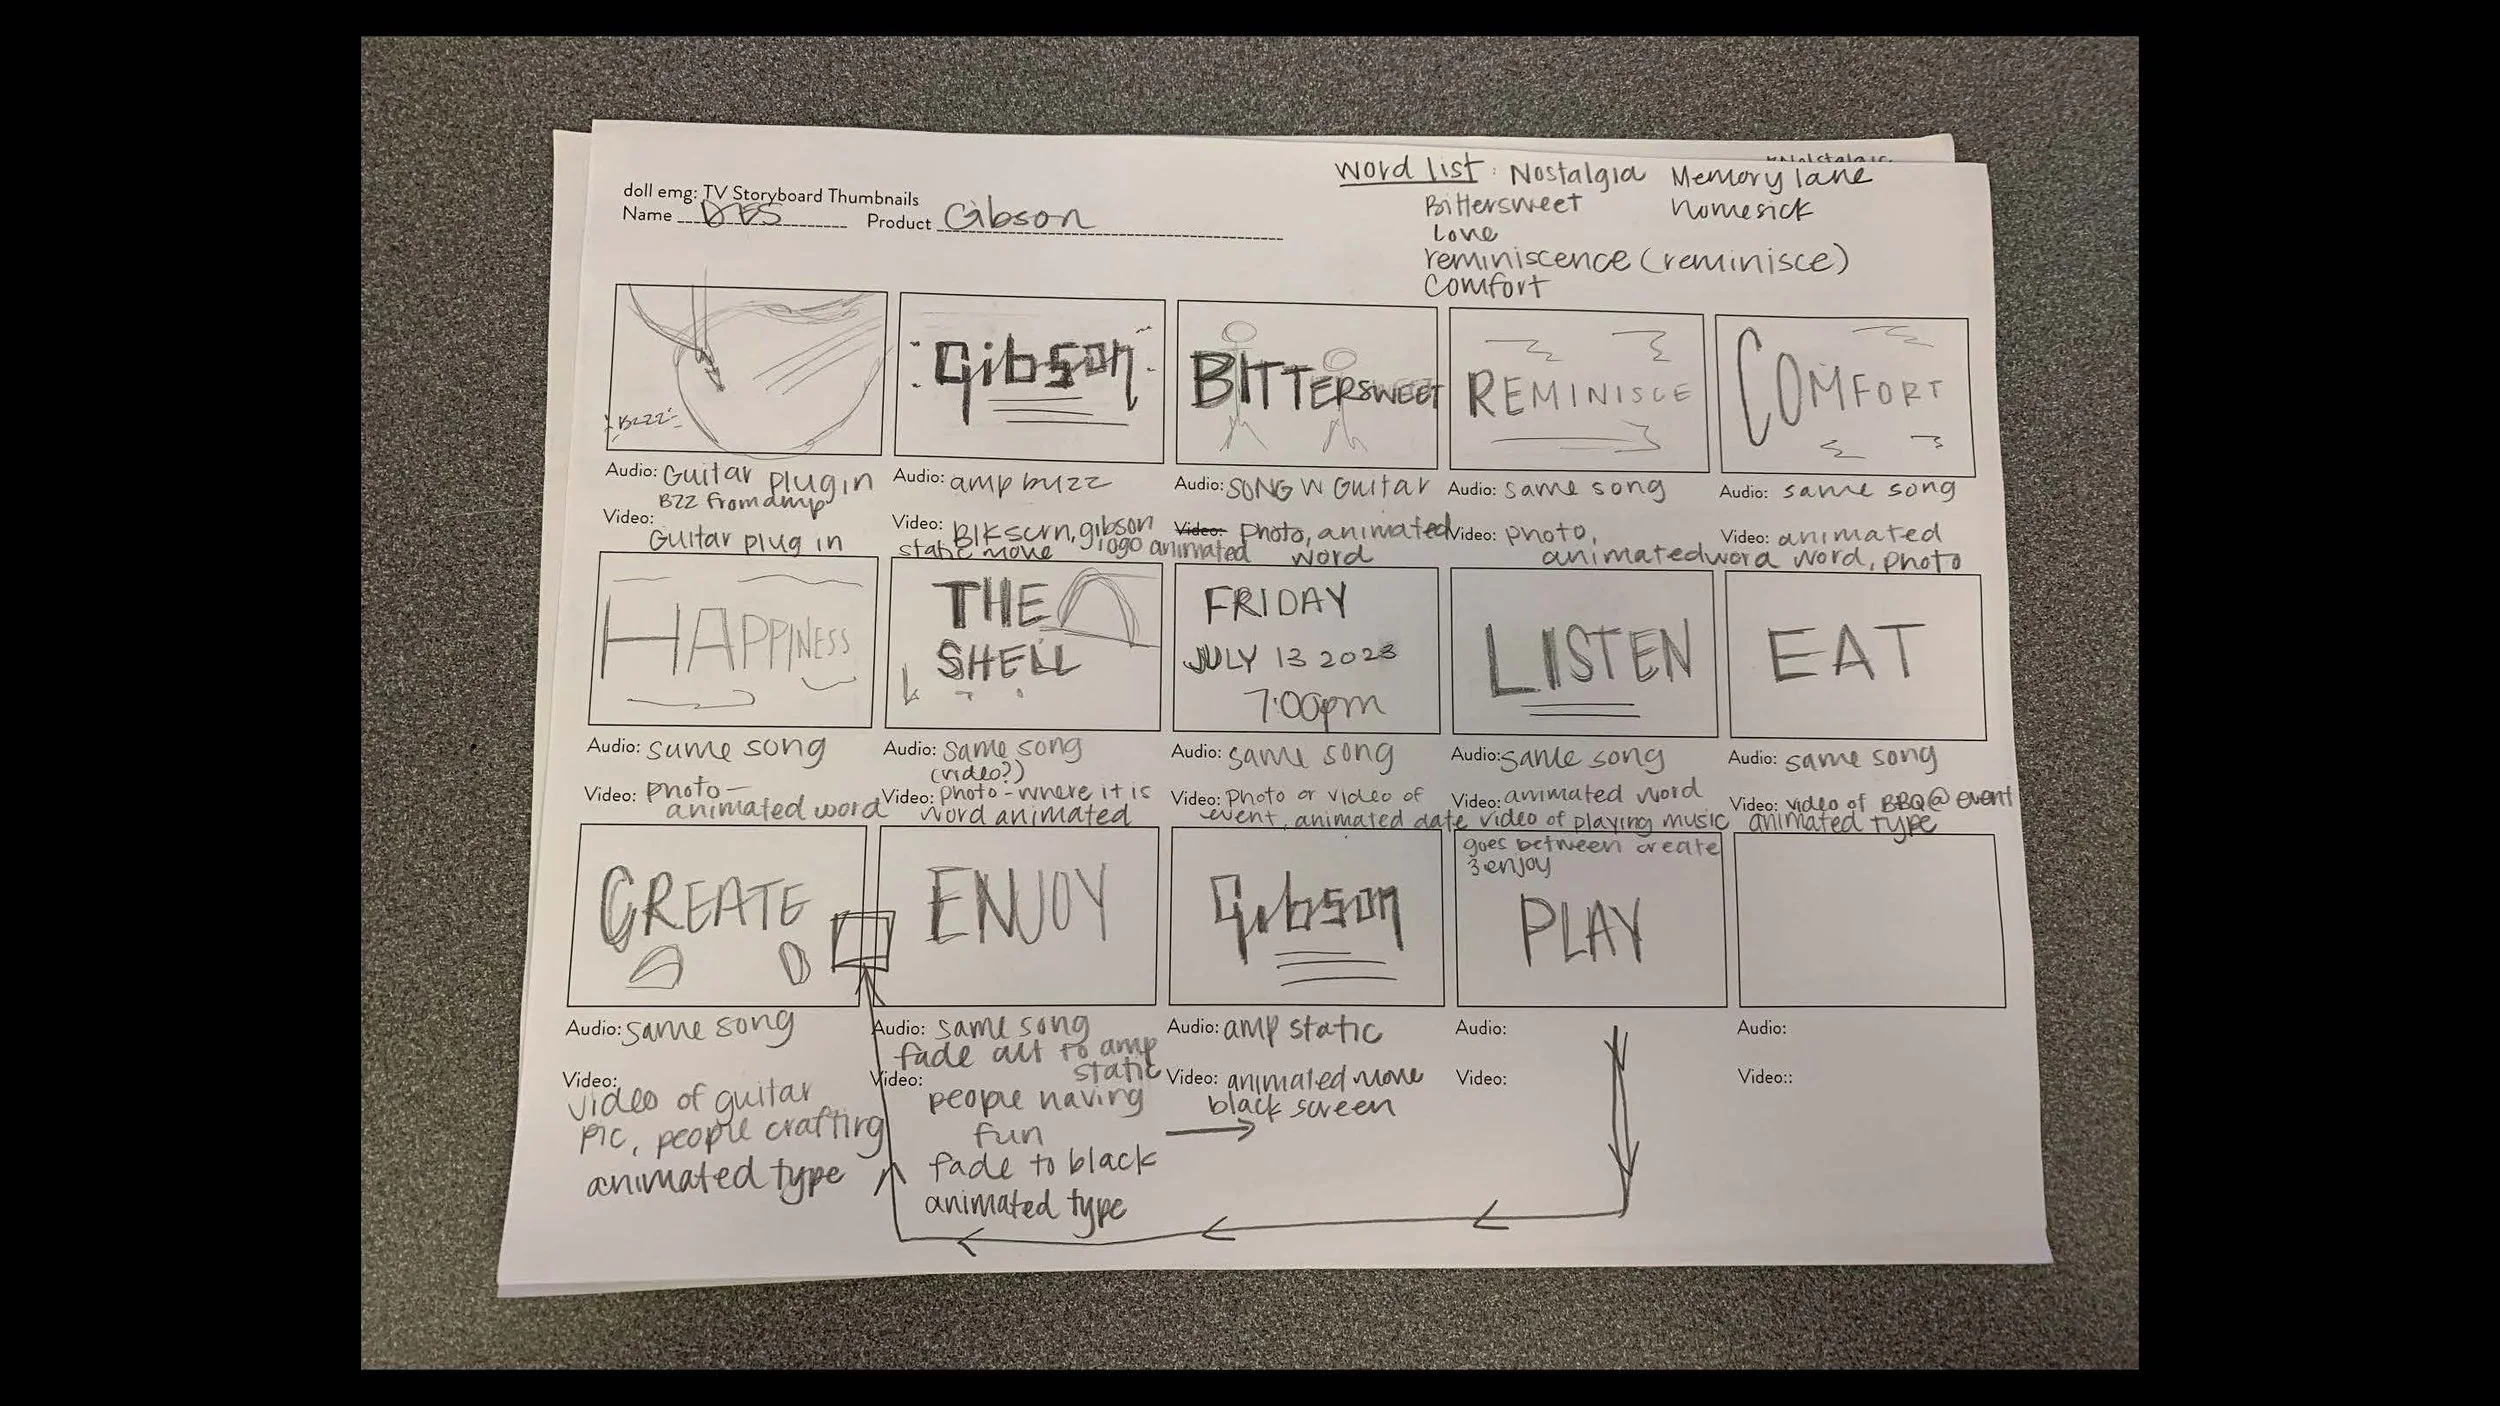 word list : Nostalgia Memory lane
Bittersweet homesick
Love
reminiscence (reminisce)
Comfort
doll emg: TV Storyboard Thumbnails
Name Product Gibson
Bzzz
Gibson
BITTERSWEET
REMINISCE
COMFORT
Audio: Guitar plug in
Bzz from amp
Video:
Guitar plug in
Audio: amp buzz
Video: Blk scrn, gibson
static move logo animated
Audio: SONG W Guitar
Video: Photo, animated
word
Audio: same song
Video: photo,
animated word
Audio: same song
Video: animated
word, photo
HAPPINESS
THE
SHELL
FRIDAY
JULY 13 2023
7:00pm
LISTEN
EAT
Audio: same song
Video: photo—
animated word
Audio: same song
(video?)
Video: photo - where it is
word animated
Audio: same song
Video: Photo or video of
event, animated date
Audio: same song
Video: animated word
video of playing music
Audio: same song
Video: video of BBQ @ event
animated type
CREATE
ENJOY
Gibson
goes between create
& enjoy
PLAY
Audio: same song
Video:
video of guitar
pic, people crafting
animated type
Audio: same song
fade out to amp
static
Video:
people having
fun
fade to black
animated type
Audio: amp static
Video: animated move
black screen
Audio:
Video:
Audio:
Video::